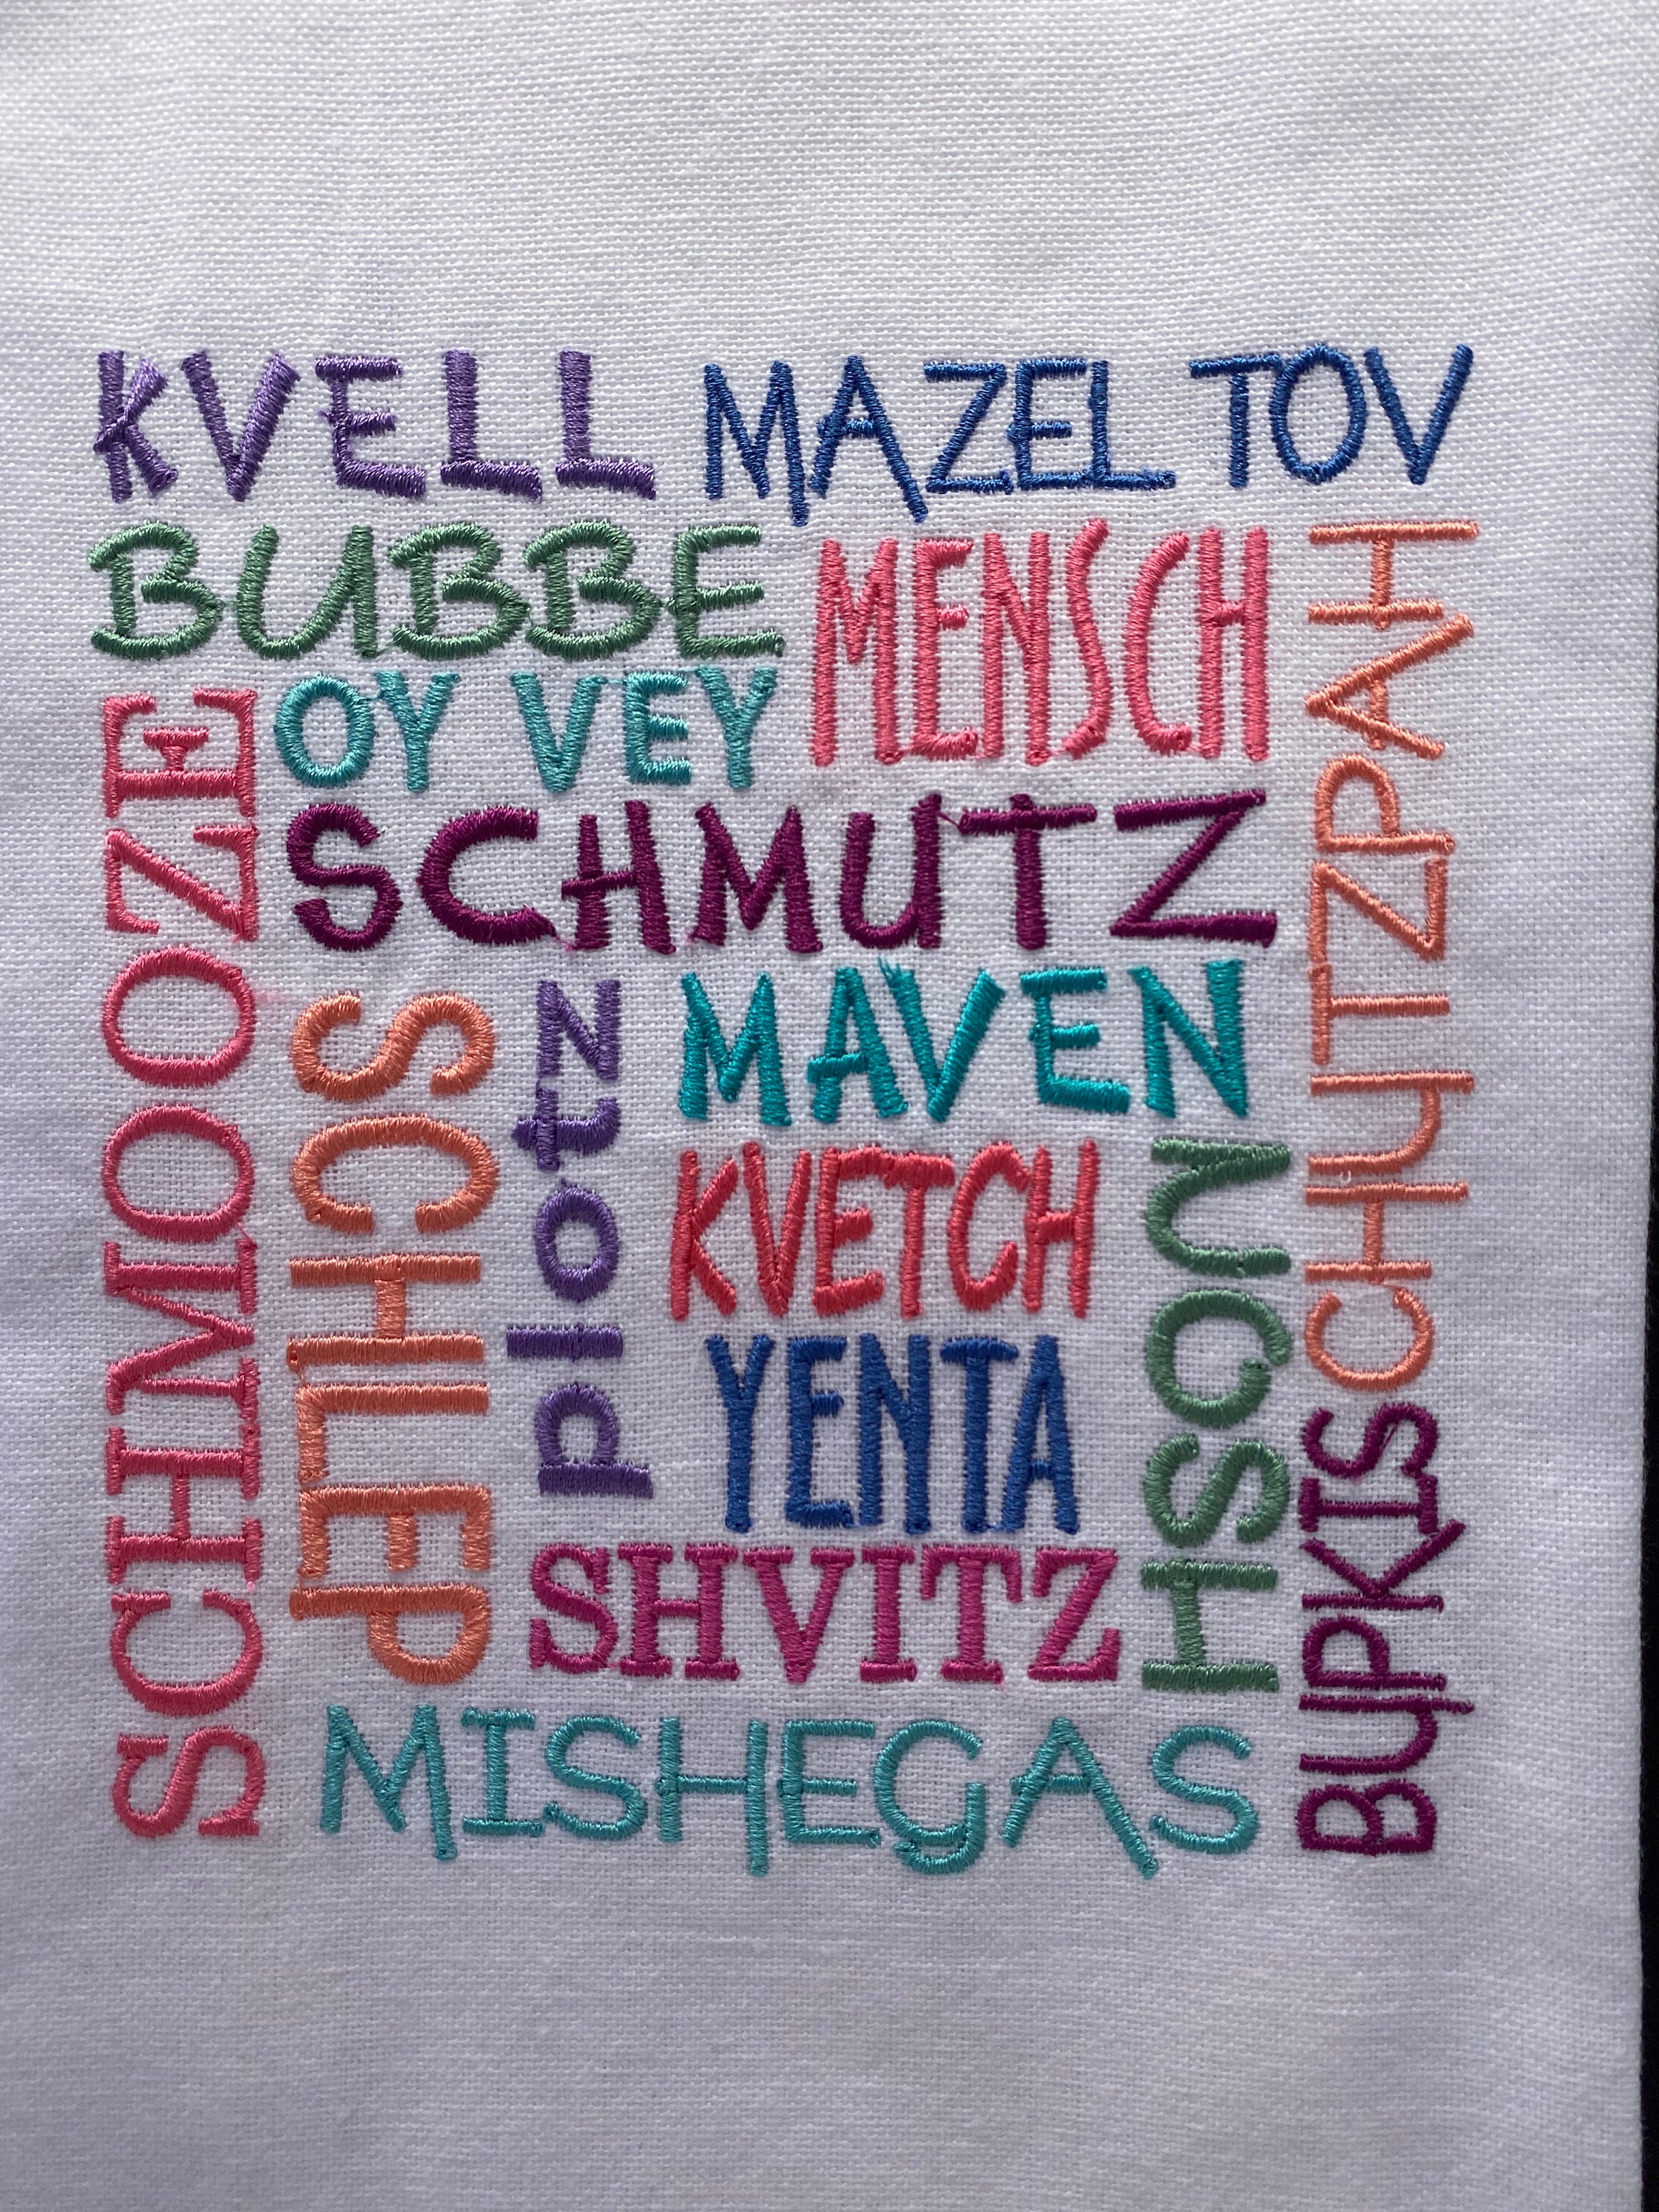 KVELL MAZEL TOV
BUBBE
MENSCH
CHUTZPAH
OY VEY
SCHMOOZE
SCHMUTZ
SCHLEP
plotz
MAVEN
KVETCH
NOSH
YENTA
BUPKIS
SHVITZ
MISHEGAS